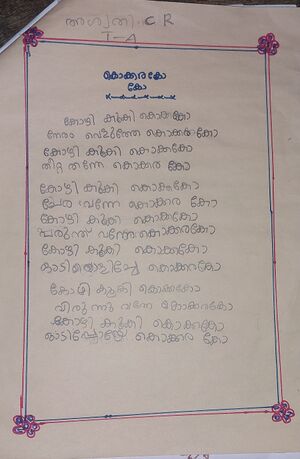 അശ്വതി. C R
I-A
കൊക്കരകോ
കോ
കോഴി കൂകി കൊക്കരകോ
നേരം വെളുത്തേ കൊക്കരകോ
കോഴി കൂകി കൊക്കരകോ
തീറ്റ തന്നേ കൊക്കര കോ
കോഴി കൂകി കൊക്കരകോ
ചേര വന്നേ കൊക്കര കോ
കോഴി കൂകി കൊക്കരകോ
പരുന്ത് വന്നേ കൊക്കരകോ
കോഴി കൂകി കൊക്കരകോ
ഓടിയൊളിച്ചേ കൊക്കരകോ
കോഴി കൂകി കൊക്കരകോ
വിരുന്നു വന്നേ കൊക്കരകോ
കോഴി കൂകി കൊക്കരകോ
കൊക്കര കോ